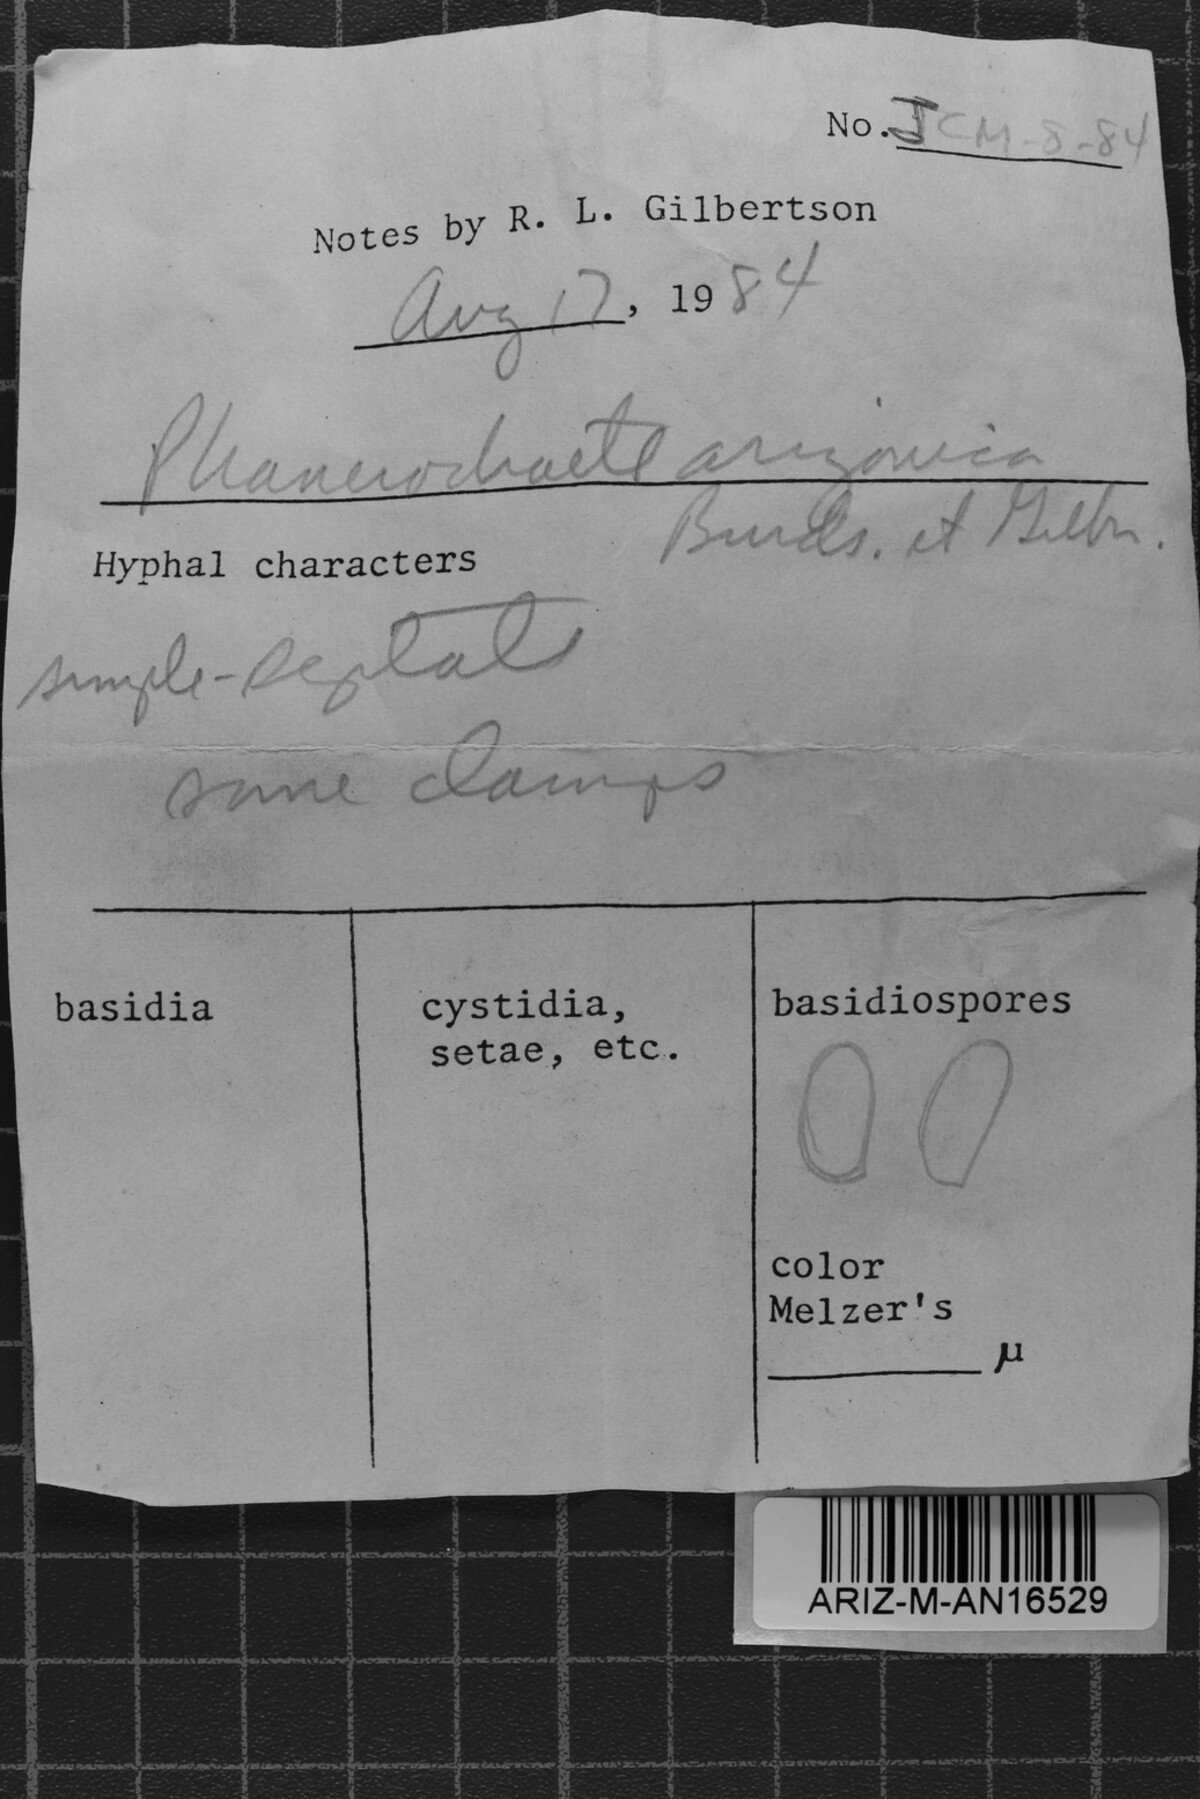 No. JCM-8-84
Notes by R. L. Gilbertson
Aug 17, 1984
Phanerochaete arizonica
Burds. et Gilbn.
Hyphal characters
simple-septate
some clamps
basidia
cystidia,
setae, etc.
basidiospores
color
Melzer's
μ
ARIZ-M-AN16529